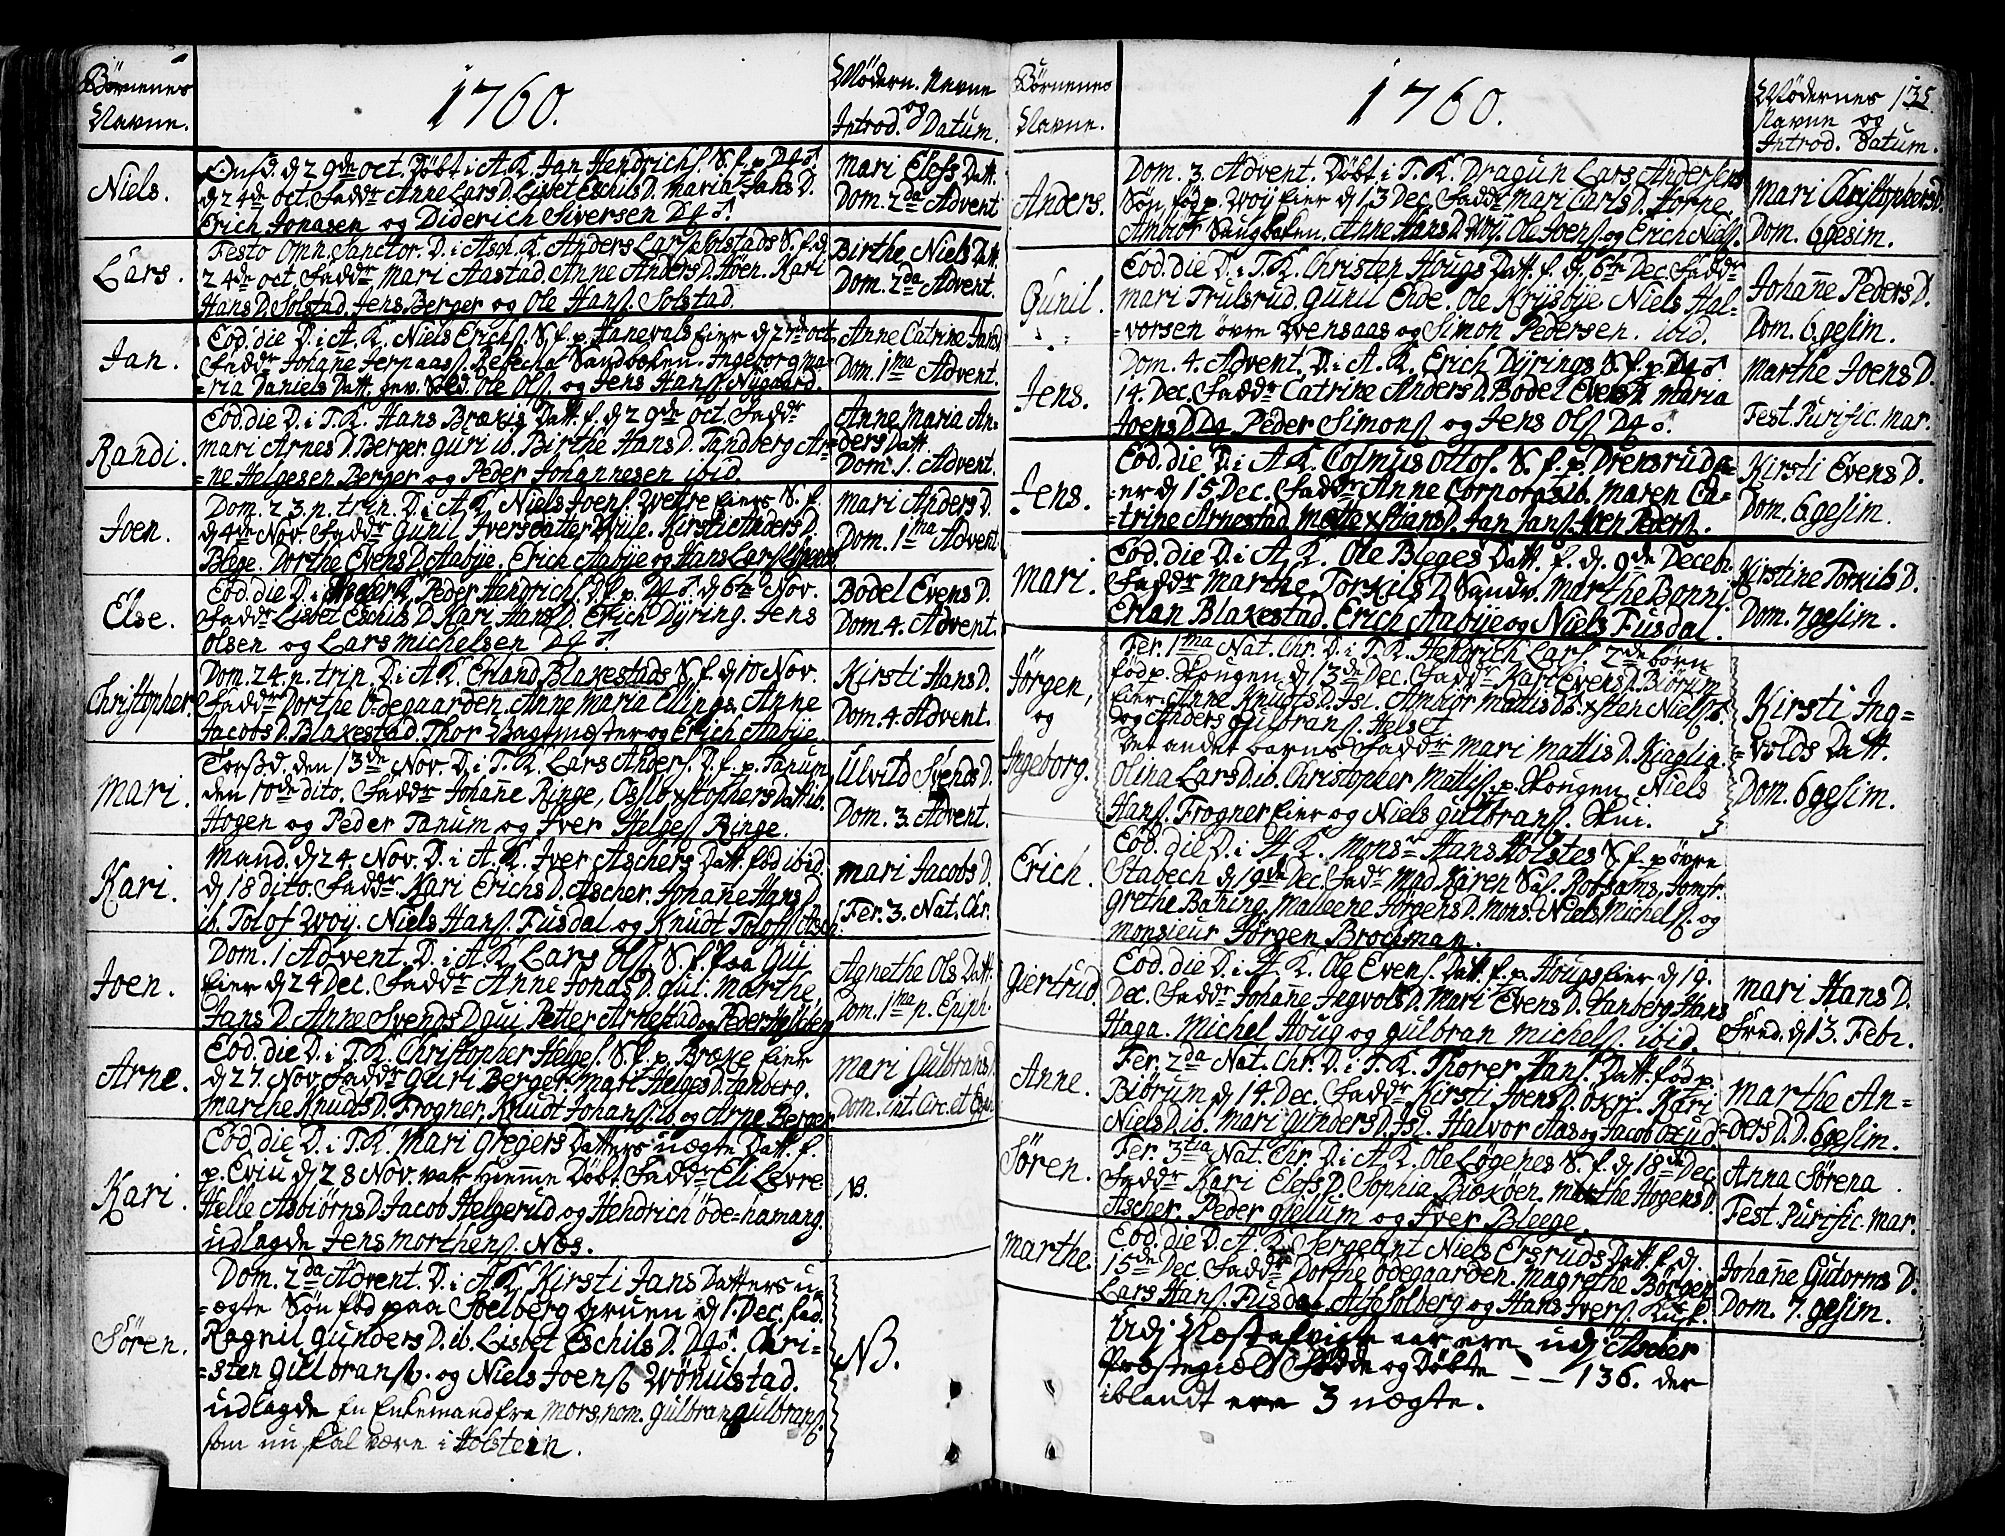 Börnenes
Navne.
1760.
Mödern. Navne
og
Introd. Datum.
Niels.
Onsd. d 29de oct. Döbt i A. K. Jan Hendrichs. S. f. p. Dg ♂.
d 24de oct Faddr Anne Lars D. Lisbet Eschils D. Maria Jans D.
Erich Jonasen og Diderich Siversen Dg ♂.
Mari Elefs Datt.
Dom. 2da Advent
Lars.
Festo Omn. Sanctor. D. i Asch. K. Anders Lars. Solstads S. f. d
24de oct. Faddr Mari Aastad. Anne Anders D. Höen. Kari
Hans D. Solstad. Jens Berger og Ole Hans. Solstad.
Birthe Niels Datt.
Dom. 2da Advent.
Jan.
Eod. die D. i A. K. Niels Erichs. S. f. p. Hanevals Eier d 27de oct
Faddr Johanne Jernaas. Rebecha Sandboken. Ingeborg ma-
=ria Daniels Datt. gev. Sold. Ole Ols. og Jens Hans. Nygaard.
Anne Catrine Jans D
Dom. 1ma Advent.
Randi.
Eod. die D. i T. K. Hans Brækis Datt. f. d 29de oct. Faddr
Mari Arnes D. Berger. Guri ib. Birthe Hans D. Tandberg Ar=
=ne Helgesen Berger og Peder Johannesen ibid.
Anne Maria An=
ders Datt.
Dom. 1. Advent.
Joen.
Dom. 23. p. trin. D. i A. K. Niels Joens. Wettre Eiers S. f.
d 4de Nov. Faddr Gunil Iversdatter Wüle. Kirsti Anders D.
Blege. Dorthe Evens D. Aabÿe. Erich Aabÿe og Hans Lars.
Mari Anders D.
Dom. 1ma Advent
Else.
Eod. die D. i Ascher K. Peder Hendrichs. D. f. p. Dg ♂. d 6te Nov.
Faddr Lisbet Eschils D. Kari Hans D. Erich Dÿring. Jens
Olsen og Lars Michelsen Dg ♂.
Bodel Evens D.
Dom 4. Advent.
Christopher.
Dom. 24. p. trin. D. i A. K. Erland Blakestads S. f. d 10 Nov.
Faddr Dorthe Ödegaarden. Anne Maria Ellings. Anne
Jacobs D. Blakestad. Thor Vagtmester og Erich Aabÿe.
Kirsti Hans D.
Dom. 4. Advent.
Mari.
Torsd. den 13de Nov. D. i T. K. Lars Anders. D. f. p. Tanum
den 10de dito. Faddr Johanne Ringe, Osse xstophers Dat ib.
Hogen og Peder Tanum og Iver Helges. Ringe.
Ulvild Svends D.
Dom. 3. Advent.
Kari.
Mand. d 24. Nov. D. i A. K. Iver Aschers Datt. fød ibid.
d 18 dito. Faddr. Kari Erichs D. Ascher. Johanne Hans D.
ib. Tolof Woÿ. Niels Hans. Fusdal og Knudt Tolofs.
Mari Jacobs D.
Fer. 3. Nat. Chr.
Joen.
Dom. 1 Advent. D. i A. K. Lars Ols. S. f. paa Gui
Eier d 24 Dec. Faddr Anne Jonas D. Gui. Marthe
Jans D. Anne Svends D. Gui Petter Arnestad og Peder
Agnethe Ols Datt.
Dom. 1ma p. Epiph.
Arne.
Eod. die D. i T. K. Christopher Helges. S. f. p. Bræke Eier
d 27. Nov. Faddr Guri Berger. Mari Helges D. Tanberg.
Marthe Knuds D. Frogner. Knudt Johans. ib. og Arne Berger.
Mari Gulbrans D.
Dom. int. Circ. et Epip.
Kari.
Eod. die D. i T. K. Mari Gregers Datters uægte Datt. f.
p. Eviu d 28 Nov. var hiemme Döbt. Faddr Eli Levre
Helle Asbiörns D. Jacob Helgerud og Hendrich öde=hamang.
udlagde Jens Morthens. Næs.
NB.
Sören.
Dom. 2da Advent. D. i A. K. Kirsti Jans Datters u=
=ægte Sön föd paa Soelberg gruen d 1. Dec. fad.
Ragnil Gunders D. ib. Lisbet Eschils D. Dg ♂. Chri=
=sten Gulbrans. og Niels Joens. Wönulstad.
udlagde En Enkemand fra Mors, nom. Gulbran Gulbrans.
som nu skal være i Holstein.
NB.
Börnenes
Navne.
1760.
Mödernes 135.
Navne og
Introd. Datum.
Anders.
Dom. 3. Advent. Döbt i T. K. Dragun Lars Andersens
Sön föd p. Woÿ Eier d 13 Dec. Faddr Mari Carls D. Torne.
Ambiör Saugbaken. Anne Hans D. Woÿ. Ole Joens. og Erich Niels.
Mari Christophers D.
Dom. 6gesim.
Gunil.
Eod. die D. i T. K. Christen Hougs Datt. f. d. 6te Dec. Faddr
Mari Trulsrud. Gunil Ende. Ole Krÿsbÿe. Niels Hal-
-vorsen övre Wensaas og Simon Pedersen. ibid.
Johanne Peders D.
Dom. 6gesim.
Jens.
Dom. 4. Advent. D. i A. K. Erich Dÿrings S. f. p. Dg ♂
14. Dec. Faddr Catrine Anders D. Bodel Evens D. Maria
Joens D. Dg. Peder Simons. og Jens Ols. Dg ♂.
Marthe Joens D.
Fest. Purific. Mar.
Jens.
Eod. die D. i A. K. Colmus Ottos. S. f. p. Drensrud
=er d 15 Dec. Faddr Anne Corporals ib. Maren Ca=
=trine Arnestad. Mette xstians D. Jan Jans. Even Peders.
Kirsti Evens D.
Dom. 6gesim.
Mari.
Eod. die D. i A. K. Ole Bleges Datt. f. d. 9de Decebr.
Faddr Marthe Torkils D. Sandv. Marthe Bonni.
Erlan Blakestad. Erich Aabÿe og Niels Fusdal.
Kirstine Torkils D.
Dom. 7gesim.
Jörgen,
og
Ingeborg.
Fer. 1ma Nat. Chr. D. i T. K. Hendrich Lars. 2de börn
föd p. Skougen d 13de Dec. Faddr Kari Evens D. Biörum
Eier. Anne Knudts D. Isi. Ambiör Mattis D. ib. xsten Niels.
og Anders Gulbrans. Helset
Det andet barns Faddr Mari Mattis D. Kiaglia.
Olina Lars D. ib. Christopher Mattis. p. Skougen. Niels
Hans. Frogner Eier og Niels Gulbrans. Skui.
Kirsti Ing=
=volds Datt.
Dom. 6gesim.
Erich.
Eod. die D. i A. K. Monsr Hans Holstes S. f. p övre
Stabech d 19de Dec. Fadr Mad. Karen Sal. Robsams, Jomfr.
Grethe Bahing. Malleene Jörgens D. Mons. Niels Michels. og
Monsieur Jörgen Brochman.
Giertrud.
Eod. die D. i A. K. Ole Evens. Datt. f. p. Hougs Eier d 19.
Dec. Faddr Johanne Ingvols D. Mari Evens D. Tanberg. Hans
Haga. Michel Houg og Gulbran Michels. ibid.
Mari Hans D.
Fred. d 13. Febr.
Anne.
Fer. 2da Nat. Chr. D. i T. K. Thorer Hans. Datt. föd p.
Biörum d 14. Dec. Faddr Kirsti Joens D. Kari
Niels D. ib. Mari Gunders D. Isi. Halvor Aas og Jacob
Marthe An=
=ders D. D. 6gesim.
Sören.
Fer. 3tia Nat. Chr. D. i A. K. Ole Løgenes S. f. d 18de Dec.
Faddr Kari Elefs D. Sophia Bisköen. Marthe Hogens D.
Ascher. Peder Gielum og Iver Bleege.
Anna Sörena
Fest. Purific. Mar.
Marthe.
Eod. die D. A. K. Sergeant Niels Ersruds Datt. f. d.
15de Dec. Faddr Dorthe Ödegaarden. Magrethe Borgen
Lars Hans. Fusdal. Alf Solberg og Hans Ivers.
Johanne Gutorms D.
Dom. 7. gesim.
Udj Næstafvigte aar ere udj Ascher
Præstegield Födde og Döbte - - 136. der
iblandt ere 3 uægte.